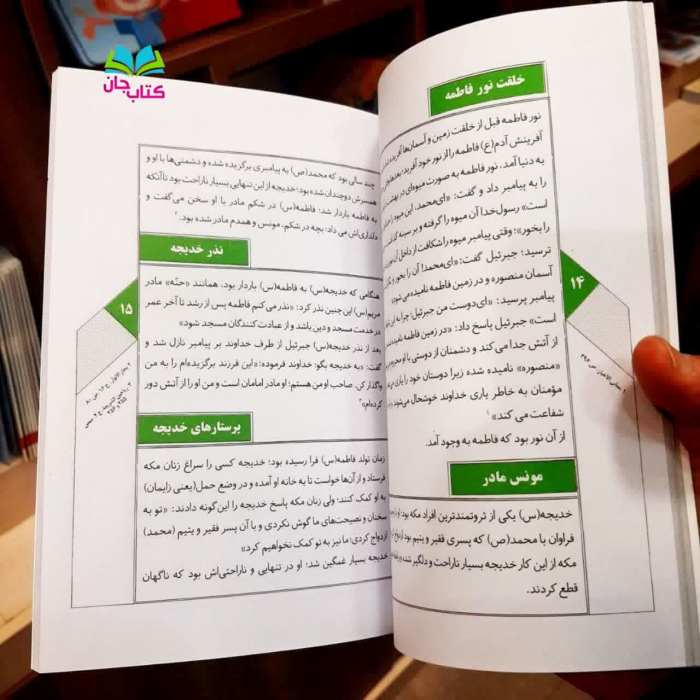 کتاب جان
خلقت نور فاطمه
نور فاطمه قبل از خلقت زمین و آسمان‌ها آفریده
آفرینش آدم(ع) فاطمه را از نور خود آفرید؛ بعدها
به دنیا آمد، نور فاطمه به صورت میوه‌ای در بهشت
را به پیامبر داد و گفت: «ای‌محمد، این میوه را
است» رسول‌خدا آن میوه را گرفته و بر سینه
را بخور»؛ وقتی پیامبر میوه را شکافت از داخل آن نوری
ترسید؛ جبرئیل گفت: «ای‌محمد! آن را بخور و
آسمان منصوره و در زمین فاطمه نامیده می‌شود»
پیامبر پرسید: «ای‌دوست من جبرئیل؛ چرا به این
است» جبرئیل پاسخ داد: «در زمین فاطمه نامیده
از آتش جدا می‌کند و دشمنان از دوستی با او محروم
«منصوره» نامیده شده زیرا دوستان خود را یاری
مؤمنان به خاطر یاری خداوند خوشحال می‌شوند
شفاعت می کند» ۱
از آن نور بود که فاطمه به وجود آمد.
مونس مادر
خدیجه(س) یکی از ثروتمندترین افراد مکه بود؛ او
فراوان با محمد(ص) که پسری فقیر و یتیم بود ازدواج
مکه از این کار خدیجه بسیار ناراحت و دلگیر شده
قطع کردند.
۱۴
چند سالی بود که محمد(ص) به پیامبری برگزیده شده و دشمنی‌ها با او و
همسرش دوچندان شده بود؛ خدیجه از این تنهایی بسیار ناراحت بود تا آنکه
به فاطمه باردار شد؛ فاطمه(س) در شکم مادر با او سخن می‌گفت و
دلداری‌اش می داد؛ بچه در شکم، مونس و همدم مادر شده بود. ۲
نذر خدیجه
هنگامی که خدیجه(س) به فاطمه(س) باردار بود، همانند «حنّه» مادر
مریم(س) این چنین نذر کرد: «نذر می کنم فاطمه پس از رشد تا آخر عمر
در خدمت مسجد و دین باشد و از عبادت کنندگان مسجد شود»
بعد از نذر خدیجه(س) جبرئیل از طرف خداوند بر پیامبر نازل شد و
گفت: «به خدیجه بگو؛ خداوند فرموده: «این فرزند برگزیده‌ام را به من
واگذار کن، صاحب او من هستم؛ او مادر امامان است و من او را از آتش دور
کرده‌ام» ۳
پرستارهای خدیجه
زمان تولد فاطمه(س) فرا رسیده بود؛ خدیجه کسی را سراغ زنان مکه
فرستاد و از آن‌ها خواست تا به خانه او آمده و در وضع حمل(یعنی زایمان)
به او کمک کنند؛ ولی زنان مکه پاسخ خدیجه را این‌گونه دادند: «تو به
سخنان و نصیحت‌های ما گوش نکردی و با آن پسر فقیر و یتیم (محمد)
ازدواج کردی؛ ما نیز به تو کمک نخواهیم کرد»
خدیجه بسیار غمگین شد؛ او در تنهایی و ناراحتی‌اش بود که ناگهان
۱۵